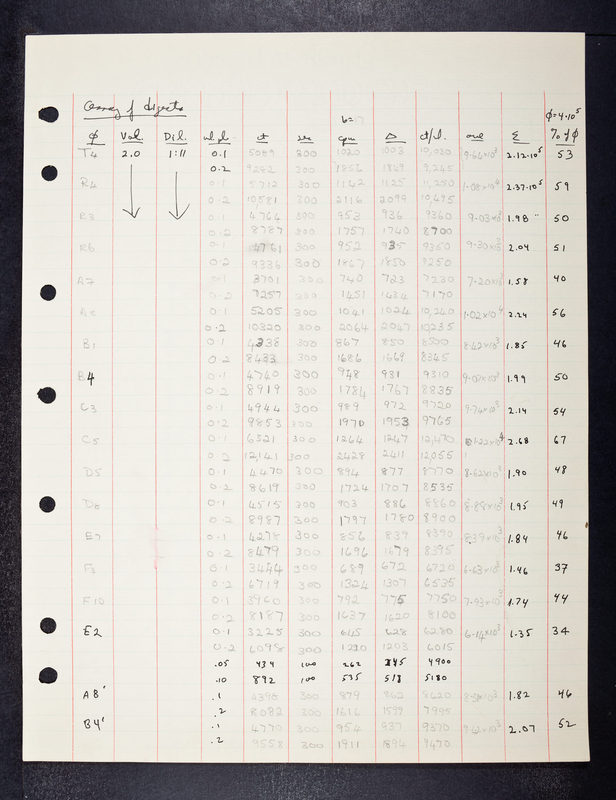 Assay of digests
b=17 φ=4·10⁵
φ Vol. Dil. ct cpm Δ ct/1. ave Σ % of φ
T4 2.0 1:11 0.1 5089 300 1020 1003 10,030 9.64×10³ 2.12·10⁵ 53
0.2 300 1849 9,245
R4 0.1 5712 300 1142 1125 11,250 1.08×10⁴ 2.37·10⁵ 59
0.2 10581 300 2116 2099 10,495
R3 0.1 4766 300 953 936 9360 9.03×10³ 1.98 " 50
0.2 8787 300 1757 1740 8700
R6 0.1 4761 300 952 935 9350 9.30×10³ 2.04 51
0.2 9336 300 1867 1850 9250
A7 0.1 3701 300 740 723 7230 7.20×10³ 1.58 40
0.2 7257 300 1451 1434 7170
0.1 5205 300 1041 1024 10,240 1.02×10⁴ 2.24 56
0.2 10320 300 2064 2047 10235
B1 0.1 4338 300 867 850 8500 8.42×10³ 1.85 46
0.2 8433 300 1686 1669 8345
B4 0.1 4740 300 948 931 9310 1.99 50
0.2 8919 300 1784 1767 8835
C3 0.1 4944 300 989 972 9720 9.74×10³ 2.14 54
0.2 9853 300 1970 1953 9765
C5 0.1 6321 300 1264 1247 12,470 1.22×10⁴ 2.68 67
0.2 12,141 300 2428 2411 12,055
D5 0.1 4470 300 894 877 8770 8.62×10³ 1.90 48
0.2 8619 300 1724 1707 8535
D8 0.1 4515 300 903 886 8860 8.88×10³ 1.95 49
0.2 8987 300 1797 1780 8900
E7 0.1 4278 300 856 839 8390 8.39×10³ 1.84 46
0.2 8479 300 1696 1679 8395
0.1 3444 300 689 672 6720 6.63×10³ 1.46 37
0.2 6719 300 1324 1307 6535
F10 0.1 3960 300 792 775 7750 7.93×10³ 1.74 44
0.2 8187 300 1637 1620 8100
E2 0.1 3225 300 645 628 6280 6.14×10³ 1.35 34
0.2 6098 300 1203 6015
.05 434 100 262 245 4900
.10 892 100 535 518 5180
A8' .1 4398 300 879 862 8620 1.82 46
.2 8082 300 1616 1599 7995
B4' .1 4770 300 954 937 9370 9.42×10³ 2.07 52
.2 9558 300 1911 1894 9470